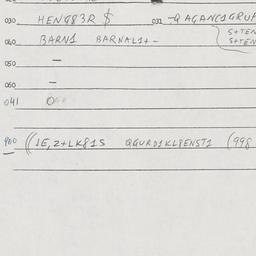 030 HENG83R $ 032 -QAGANC1GRUP
S+TEN
040 BARN1 BARNAL1+- S+TEN
050 -
060 -
041 0
900 ((1E,2+LK815 QGURD1KL8ENST1 (998